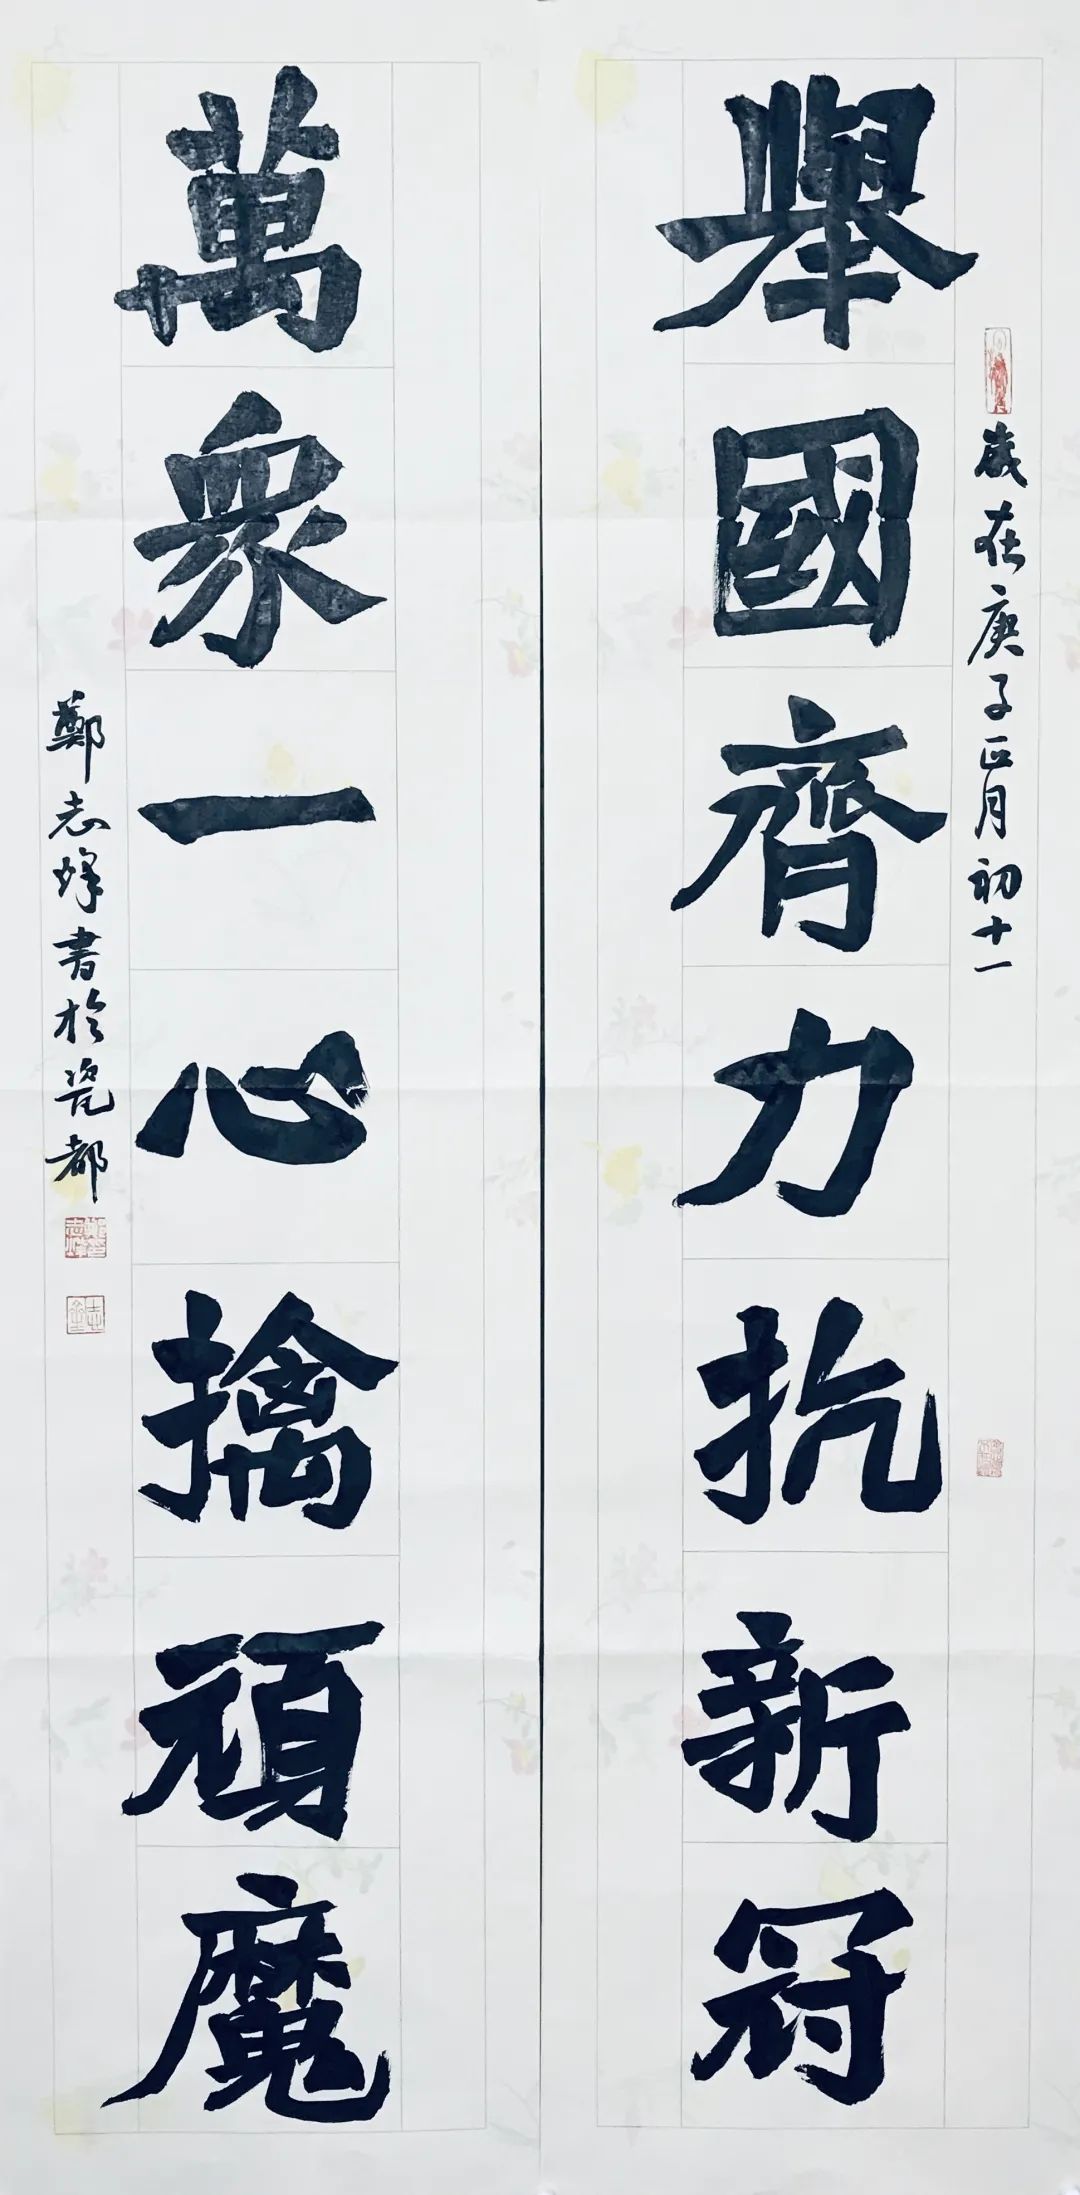 歲在庚子正月初十一
舉國齊力抗新冠
萬衆一心擒頑魔
鄭志烽書於瓷都